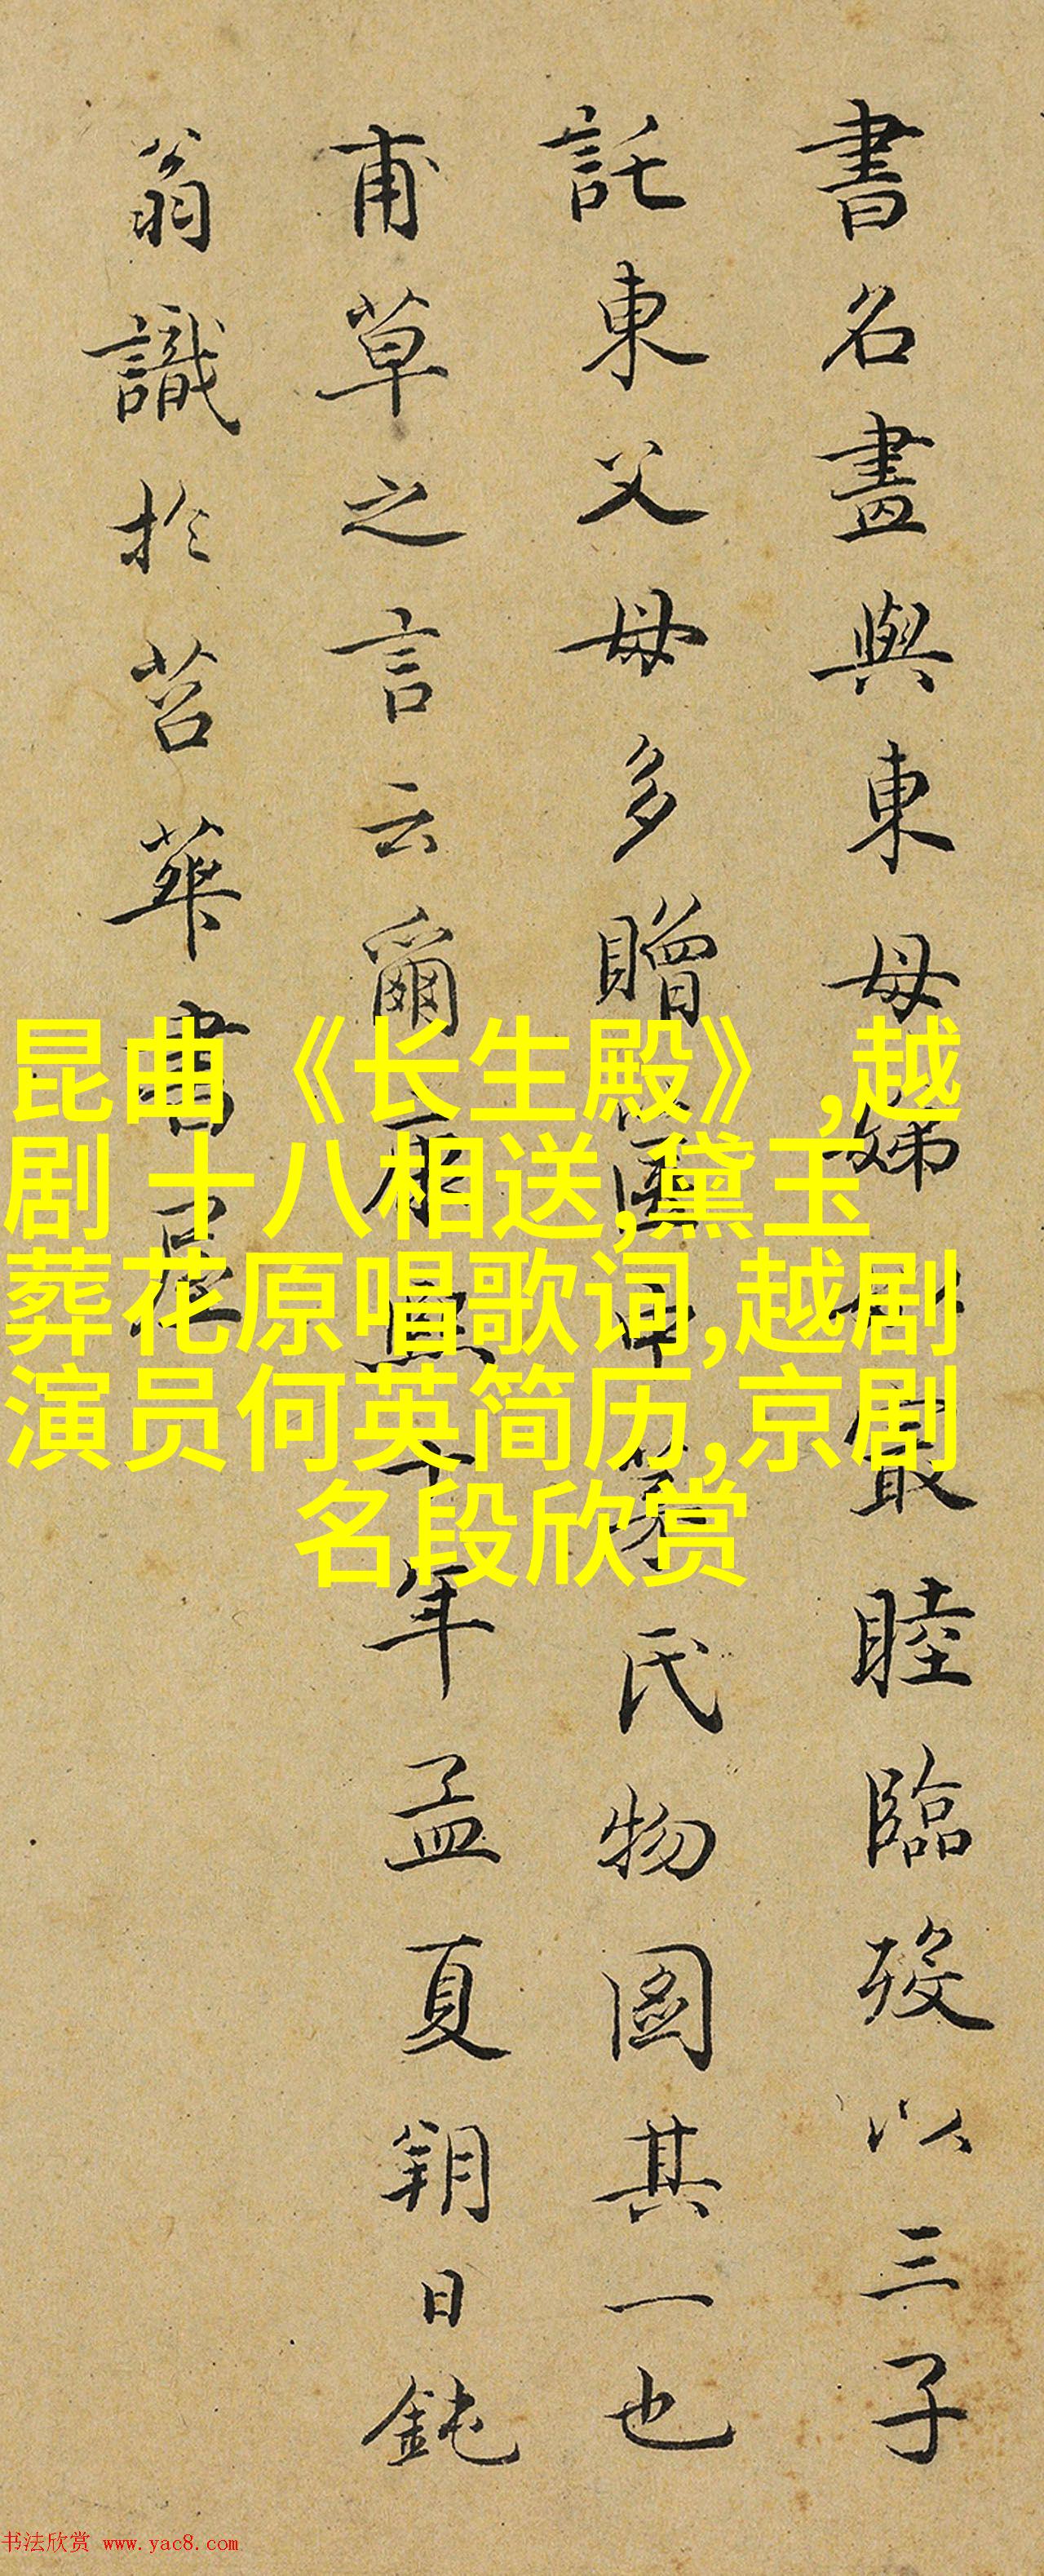 書名畫與東母娣母最睦臨歿以三子
託東父母多贈國中弟氏物圖其一也
甫草之言云爾康熙十年孟夏朔日鈍
翁識於苕華書屋
昆曲《长生殿》,越
剧 十八相送,黛玉
葬花原唱歌词,越剧
演员何英简历,京剧
名段欣赏
书法欣赏 www.yac8.com